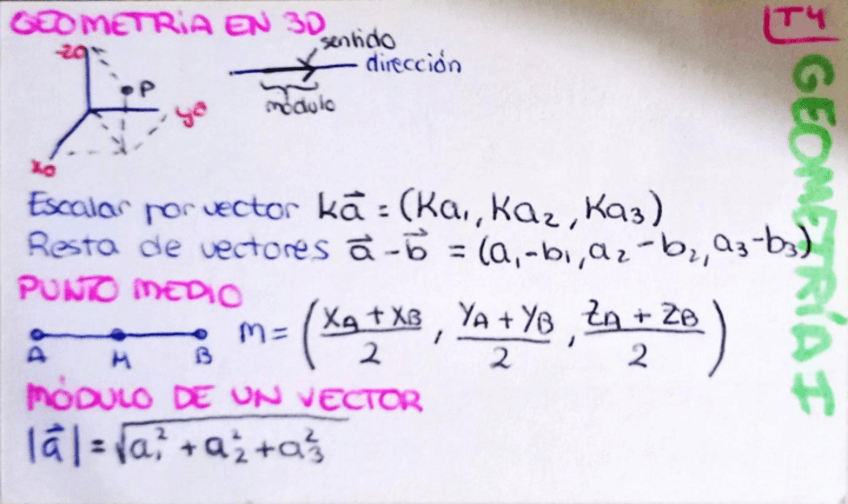 GEOMETRÍA EN 3D
T4
GEOMETRÍA I
sentido
dirección
módulo
z0
P
y0
x0
Escalar por vector k\vec{a} = (Ka₁, Ka₂, Ka₃)
Resta de vectores \vec{a} - \vec{b} = (a₁-b₁, a₂-b₂, a₃-b₃)
PUNTO MEDIO
A M B
m = ( \frac{x_A + x_B}{2} , \frac{y_A + y_B}{2} , \frac{z_A + z_B}{2} )
MÓDULO DE UN VECTOR
|\vec{a}| = \sqrt{a₁² + a₂² + a₃²}